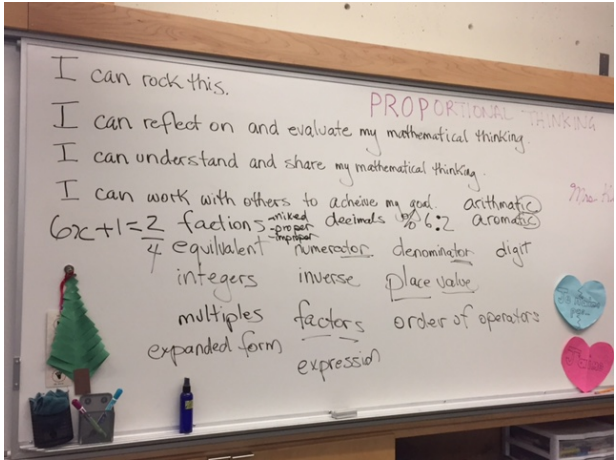 I can rock this.
PROPORTIONAL THINKING
I can reflect on and evaluate my mathematical thinking.
I can understand and share my mathematical thinking.
I can work with others to acheive my goal. arithmatic
6x+1=2/4 factions -mixed -proper -improper decimals % 6:2 aromatic
equilvalent numerator denominator digit
integers inverse place value
multiples factors order of operators
expanded form
expression